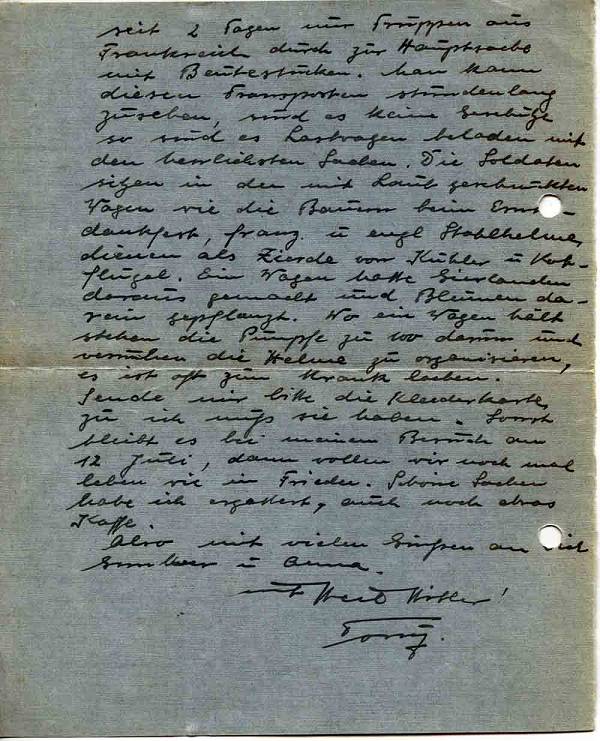 seit 2 Tagen nur Truppen aus
Frankreich durch zur Hauptsache
mit Beutestücken. Man kann
diesen Transporten stundenlang
zusehen, sind es keine Geschütze
so sind es Lastwagen beladen mit
den herrlichsten Sachen. Die Soldaten
sitzen in den mit Laub geschmückten
Wagen wie die Bauern beim Ernte-
dankfest, franz. u engl Stahlhelme,
dienen als Zierde vor Kühler u Kot-
flügel. Ein Wagen hatte Girlanden
daraus gemacht und Blumen da-
rein gepflanzt. Wo ein Wagen hält
stehen die Pimpfe zu 100 darum und
versuchen die Helme zu organisieren,
es ist oft zum krank lachen.
Sende mir bitte die Kleiderkarte
zu ich muß sie haben. Sonst
bleibt es bei meinem Besuch am
12 Juli, dann wollen wir noch mal
leben wie in Frieden. Schöne Sachen
habe ich ergattert, auch noch etwas
Kaffe.
Also mit vielen Grüßen an Dich
u Anna.
mit Heil Hitler!